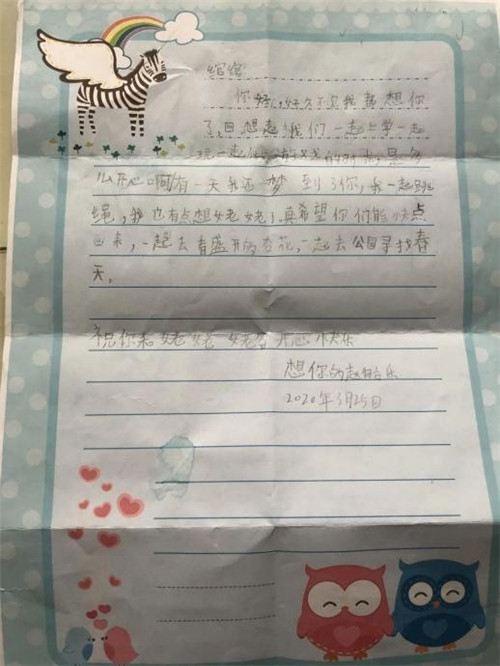 你好,好久不见我蛮想你
了,回想起我们一起上学一起
玩一起 的时光,是多
么开心啊有一天我还梦到了你,我一起跳
绳,我也有点想姥姥了真希望你们能快点
回来,一起去看盛开的杏花,一起去公园寻找春
天。
祝你和姥爷姥姥开心快乐
想你的赵 乐
2020年3月25日